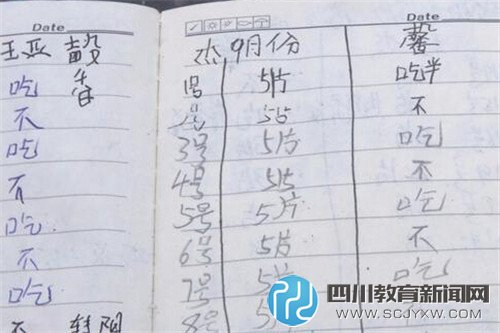 Date
王亚
吃
不
吃
不
吃
不
吃
不
Date
杰,9月份
1号 5片 吃半
2号 5片 不
3号 5片 吃
4号 5片 不
5号 5片 吃
6号 5片 不
7号 5片 吃
8号 5片
四川教育新闻网
WWW.SCJYXW.COM